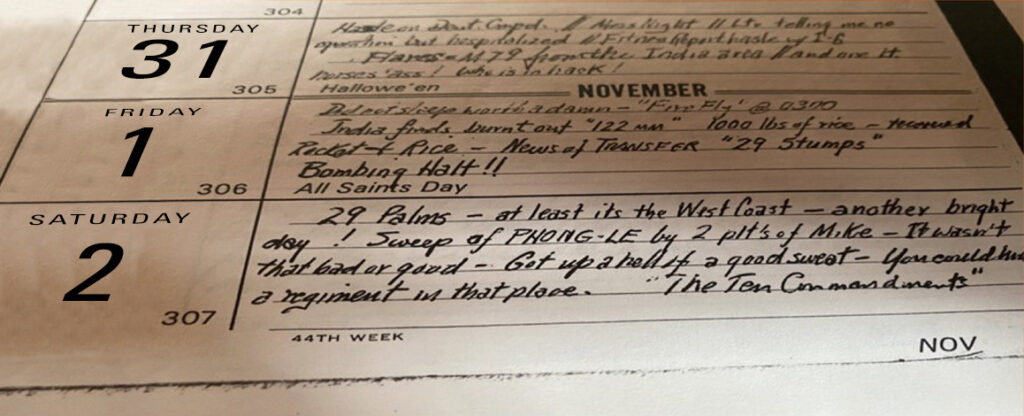 304
THURSDAY
31
305
Hassle on Dout. Compd. // Mess Night // Ltc telling me no
operation but hospitalized // Fitness Report hassle w/ I-6
Flares - M79 from the India area // and one Lt.
horses' ass! Who is to hack!
Hallowe'en
NOVEMBER
FRIDAY
1
306
Did not sleep worth a damn - "Fire Fly" @ 0300
India finds burnt out "122 mm" 1000 lbs of rice - recovered
Rocket + Rice - News of TRANSFER "29 Stumps"
Bombing Halt!!
All Saints Day
SATURDAY
2
307
29 Palms - at least its the West Coast - another bright
day! Sweep of PHONG-LE by 2 plt's of Mike - It wasn't
that bad or good - Got up a hell of a good sweat - You could
a regiment in that place. "The Ten Commandments"
44TH WEEK
NOV